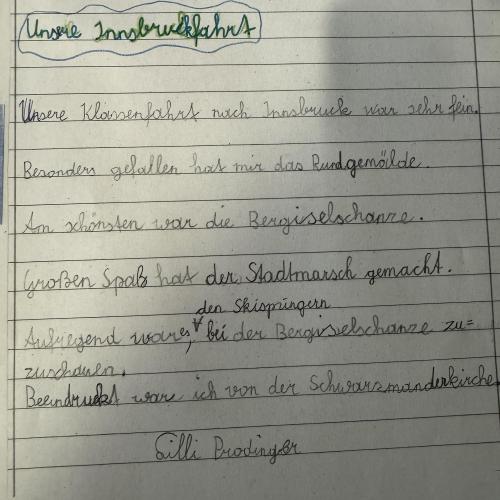 Unsere Innsbruckfahrt
Unsere Klassenfahrt nach Innsbruck war sehr fein.
Besonders gefallen hat mir das Rundgemälde.
Am schönsten war die Bergiselschanze.
Großen Spaß hat der Stadtmarsch gemacht.
den Skispringern
Aufregend war es, bei der Bergiselschanze zu=
zuschauen.
Beeindruckt war ich von der Schwarzmanderkirche.
Cilli Prodinger